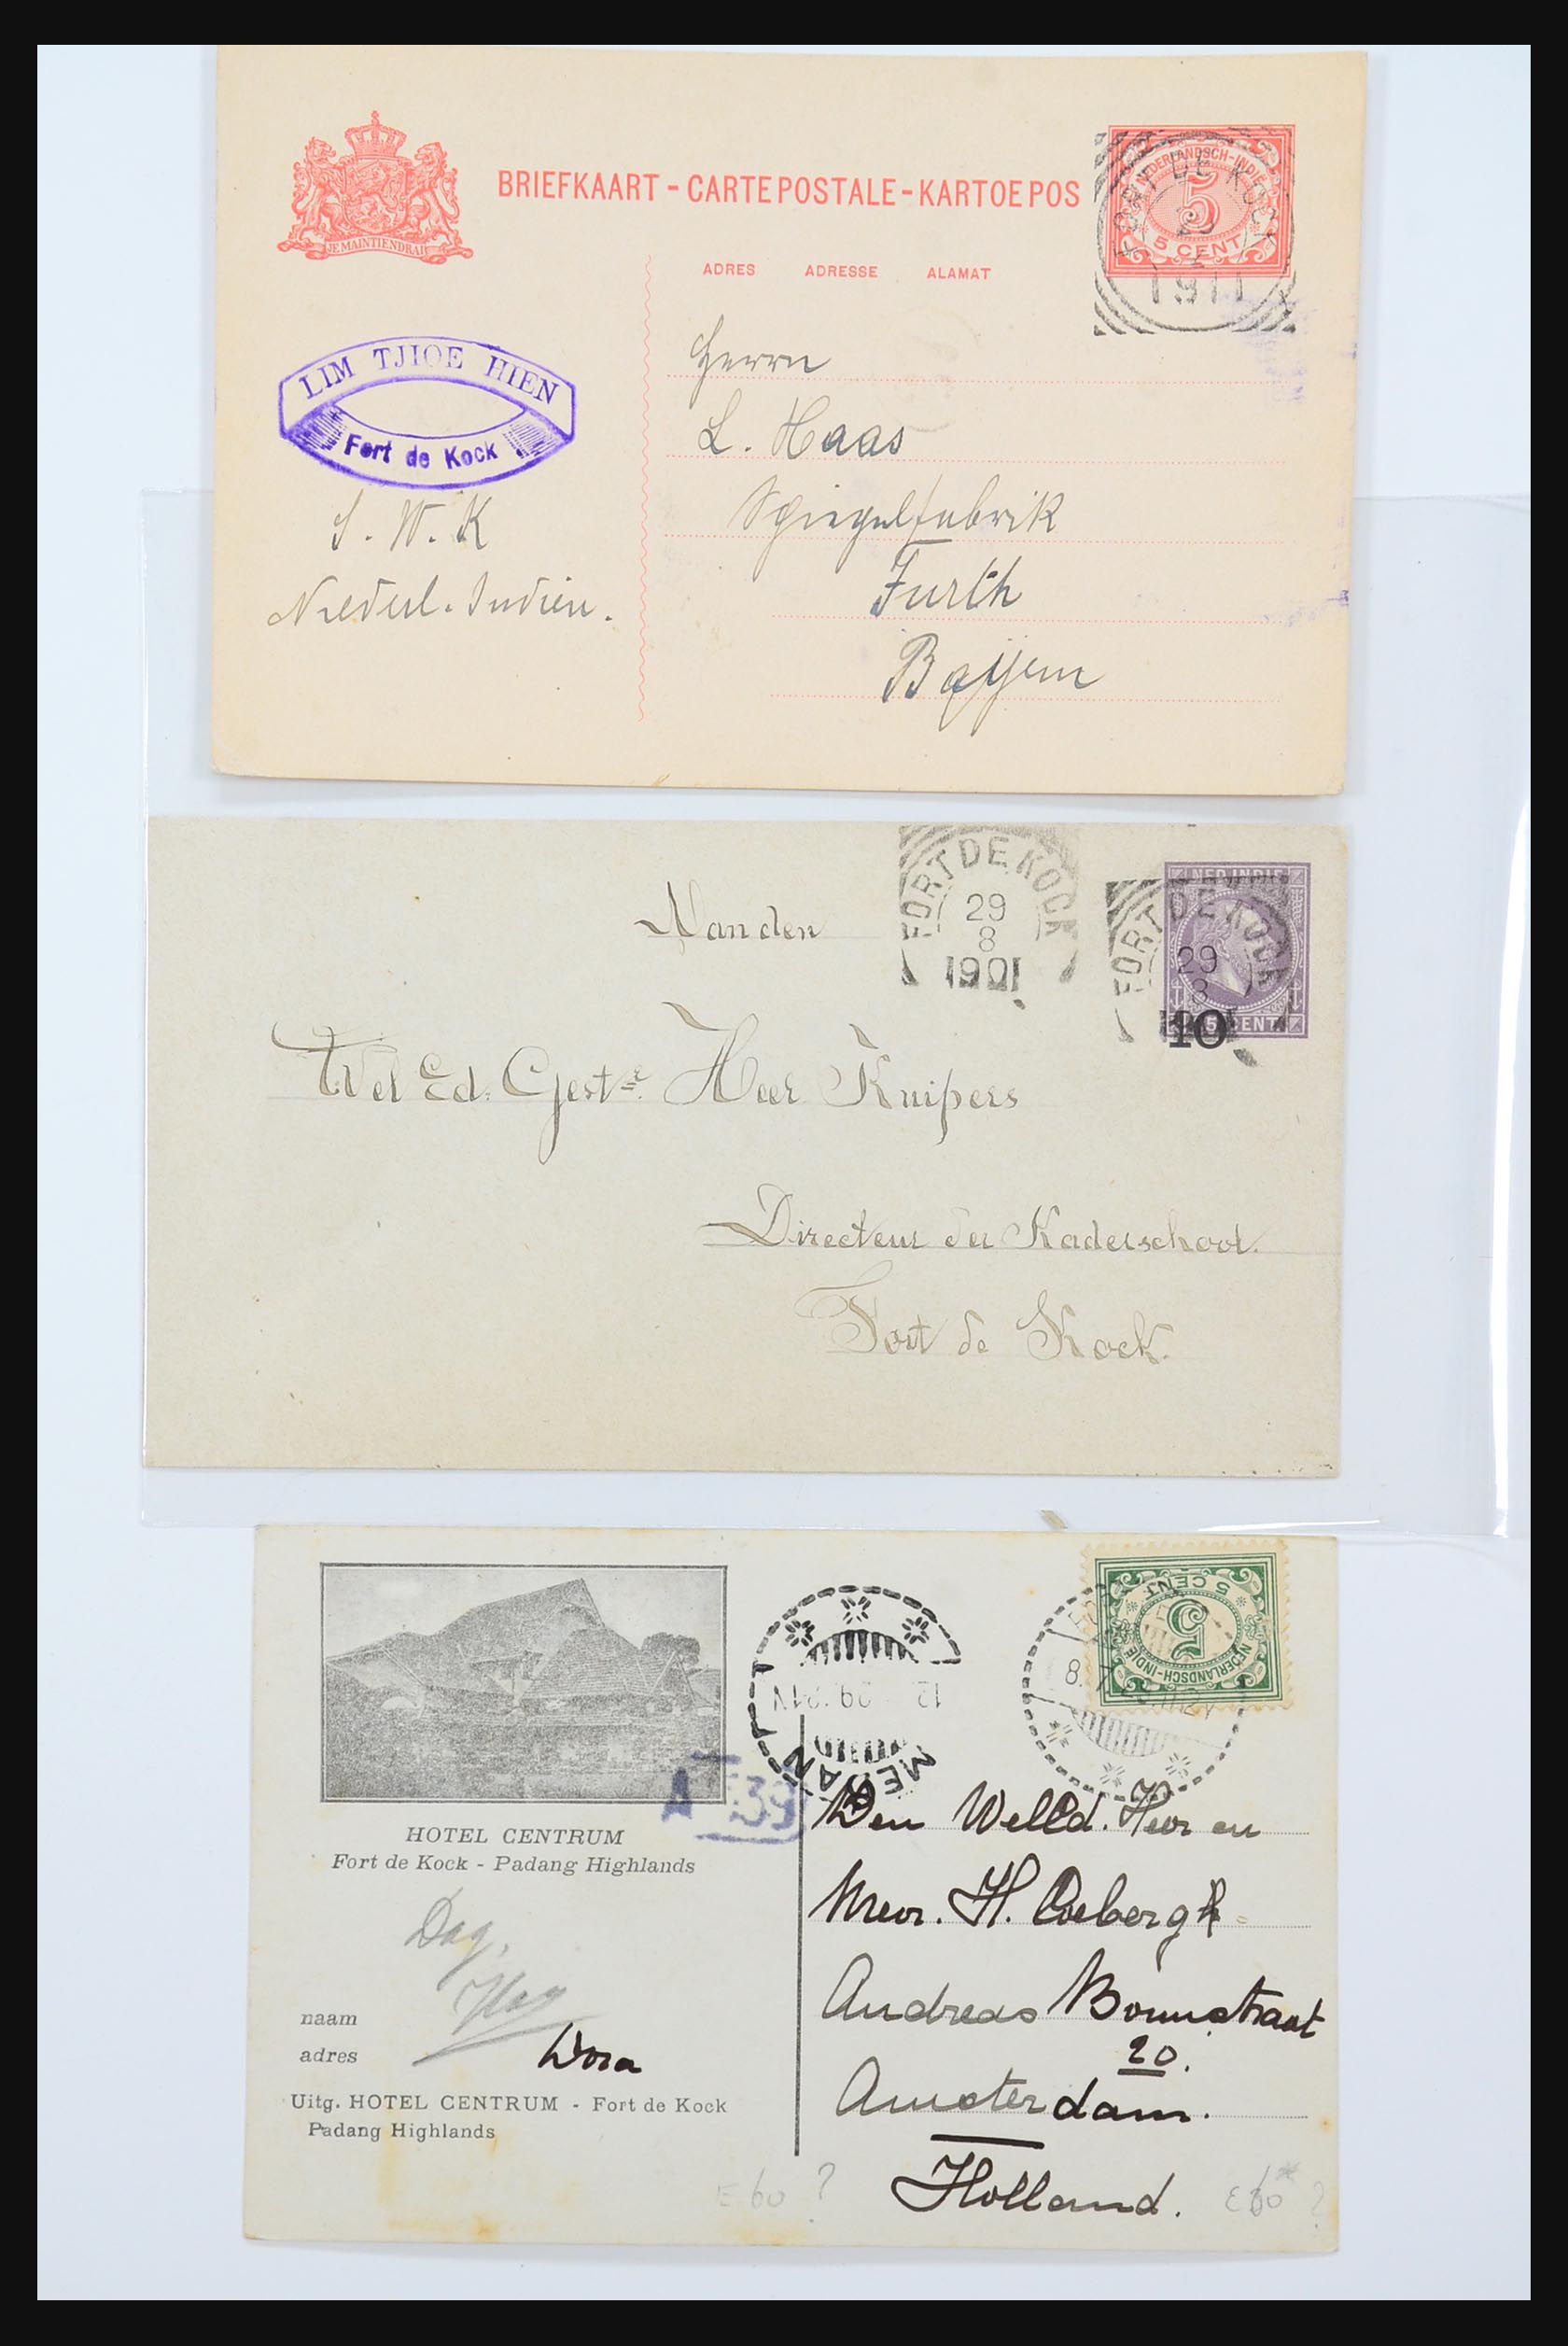 BRIEFKAART - CARTE POSTALE - KARTOE POS
JE MAINTIENDRAI
NEDERLANDSCH-INDIË
5
5 CENT
FORT DE KOCK
1911
ADRES ADRESSE ALAMAT
LIM TJIOE HIEN
Fort de Kock
S. W. K
Niederl. Indien.
Herrn
L. Haas
Spiegelfabrik
Fürth
Bayern
FORT DE KOCK
29
8
1901
NED. INDIE
FORT DE KOCK
29
8
10
CENT
Aan den
Wel Ed. Gestr. Heer Kuipers
Directeur der Kaderschool.
Fort de Kock.
5 CENT
5
NEDERLANDSCH-INDIE
MEDAN
A 39
HOTEL CENTRUM
Fort de Kock - Padang Highlands
Dag,
naam
adres
Dora
Uitg. HOTEL CENTRUM - Fort de Kock
Padang Highlands
Den WelEd. Heer en
Mevr. H.
Andreas Bonnstraat
20.
Amsterdam.
Holland.
E 60 ?
E 60 ?